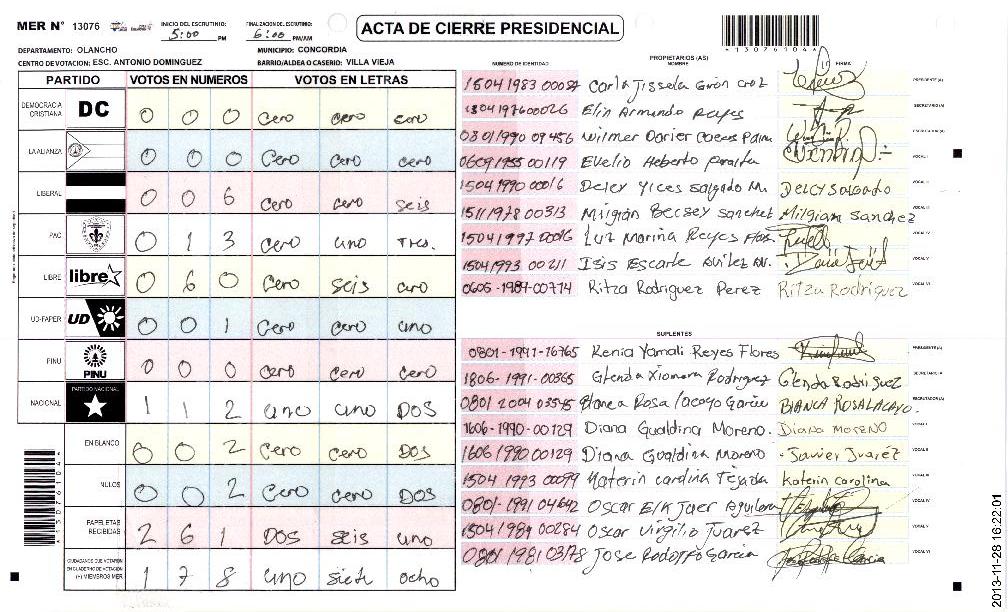 MER N° 13076
INICIO DEL ESCRUTINIO: 5:00 PM
FINALIZACION DEL ESCRUTINIO: 6:00 PM/AM
ACTA DE CIERRE PRESIDENCIAL
*1307610 4*
DEPARTAMENTO: OLANCHO MUNICIPIO: CONCORDIA
CENTRO DE VOTACION: ESC. ANTONIO DOMINGUEZ BARRIO/ALDEA O CASERIO: VILLA VIEJA
PARTIDO VOTOS EN NUMEROS VOTOS EN LETRAS
DEMOCRACIA CRISTIANA DC 0 0 0 cero cero cero
LA ALIANZA 0 0 0 Cero Cero cero
LIBERAL 0 0 6 cero cero seis
PAC 0 1 3 cero uno Tres.
LIBRE libre 0 6 0 Cero seis cero
UD-FAPER UD 0 0 1 Cero Cero uno
PINU PINU 0 0 0 cero cero Cero
NACIONAL PARTIDO NACIONAL 1 1 2 uno uno DOS
EN BLANCO 0 0 2 Cero Cero DOS
NULOS 0 0 2 Cero cero DOS
PAPELETAS RECIBIDAS 2 6 1 DOS seis uno
CIUDADANOS QUE VOTARON EN CUADERNO DE VOTACION (+) MIEMBROS MER 1 7 8 uno siete ocho
NUMERO DE IDENTIDAD PROPIETARIOS (AS) NOMBRE FIRMA
1504 1983 00027 Carla Jissela Girón Cruz PRESIDENTE(A)
1504 1976 00026 Elin Armando Reyes SECRETARIO(A)
0801/1990 09456 Wilmer Darier ESCRUTADOR(A)
0609 1955 00119 Evelio Heberto Peralta VOCAL I
1504 1990 00016 Delcy Yices Salgado M. DELCY SALGADO VOCAL II
1511 1978 00313 Milgian Becsey Sanchez Milgiam Sanchez VOCAL III
1504 1997 00016 Luz Marina Reyes Flores VOCAL IV
1504 1993 00211 Isis Escarle VOCAL V
0605-1989-00774 Ritza Rodriguez Perez Ritza Rodríguez VOCAL VI
SUPLENTES
0801-1991-16765 Kenia Yamali Reyes Flores PRESIDENTE(A)
1806-1991-00365 Glenda Xiomara Rodriguez Glenda Rodriguez SECRETARIO A
0801 2004 03545 Blanca Rosa Lacayo García BLANCA ROSA LACAYO. ESCRUTADOR(A)
1606-1990-00129 Diana Gualdina Moreno. Diana MORENO VOCAL I
1606 1990 00129 Diana Gualdina Moreno Javier Juaréz VOCAL II
1504 1993 00099 Katerin Carolina Tejada Katerin Carolina VOCAL III
0801-1991 04642 Oscar Aguilera VOCAL IV
1504 1989 00284 Oscar Virgilio Juarez VOCAL V
0801 1981 03178 Jose Rodolfo Garcia VOCAL VI
2013-11-28 16:22:01